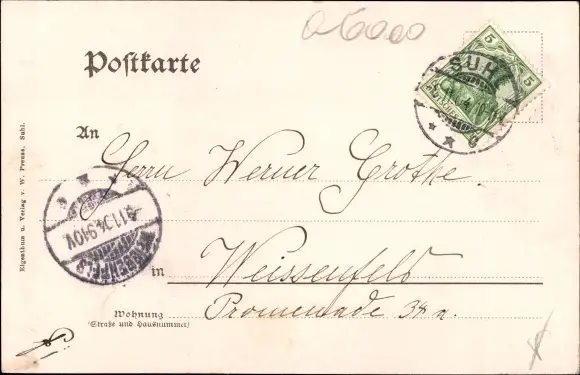 Postkarte
5 5
SUHL
An
Herrn Werner Grothe.
4.11.04.9-10V.
WEISSENFELS
in Weissenfels
Wohnung
(Straße und Hausnummer)
Promenade 38 a.
Eigenthum u. Verlag v. W. Preuss, Suhl.